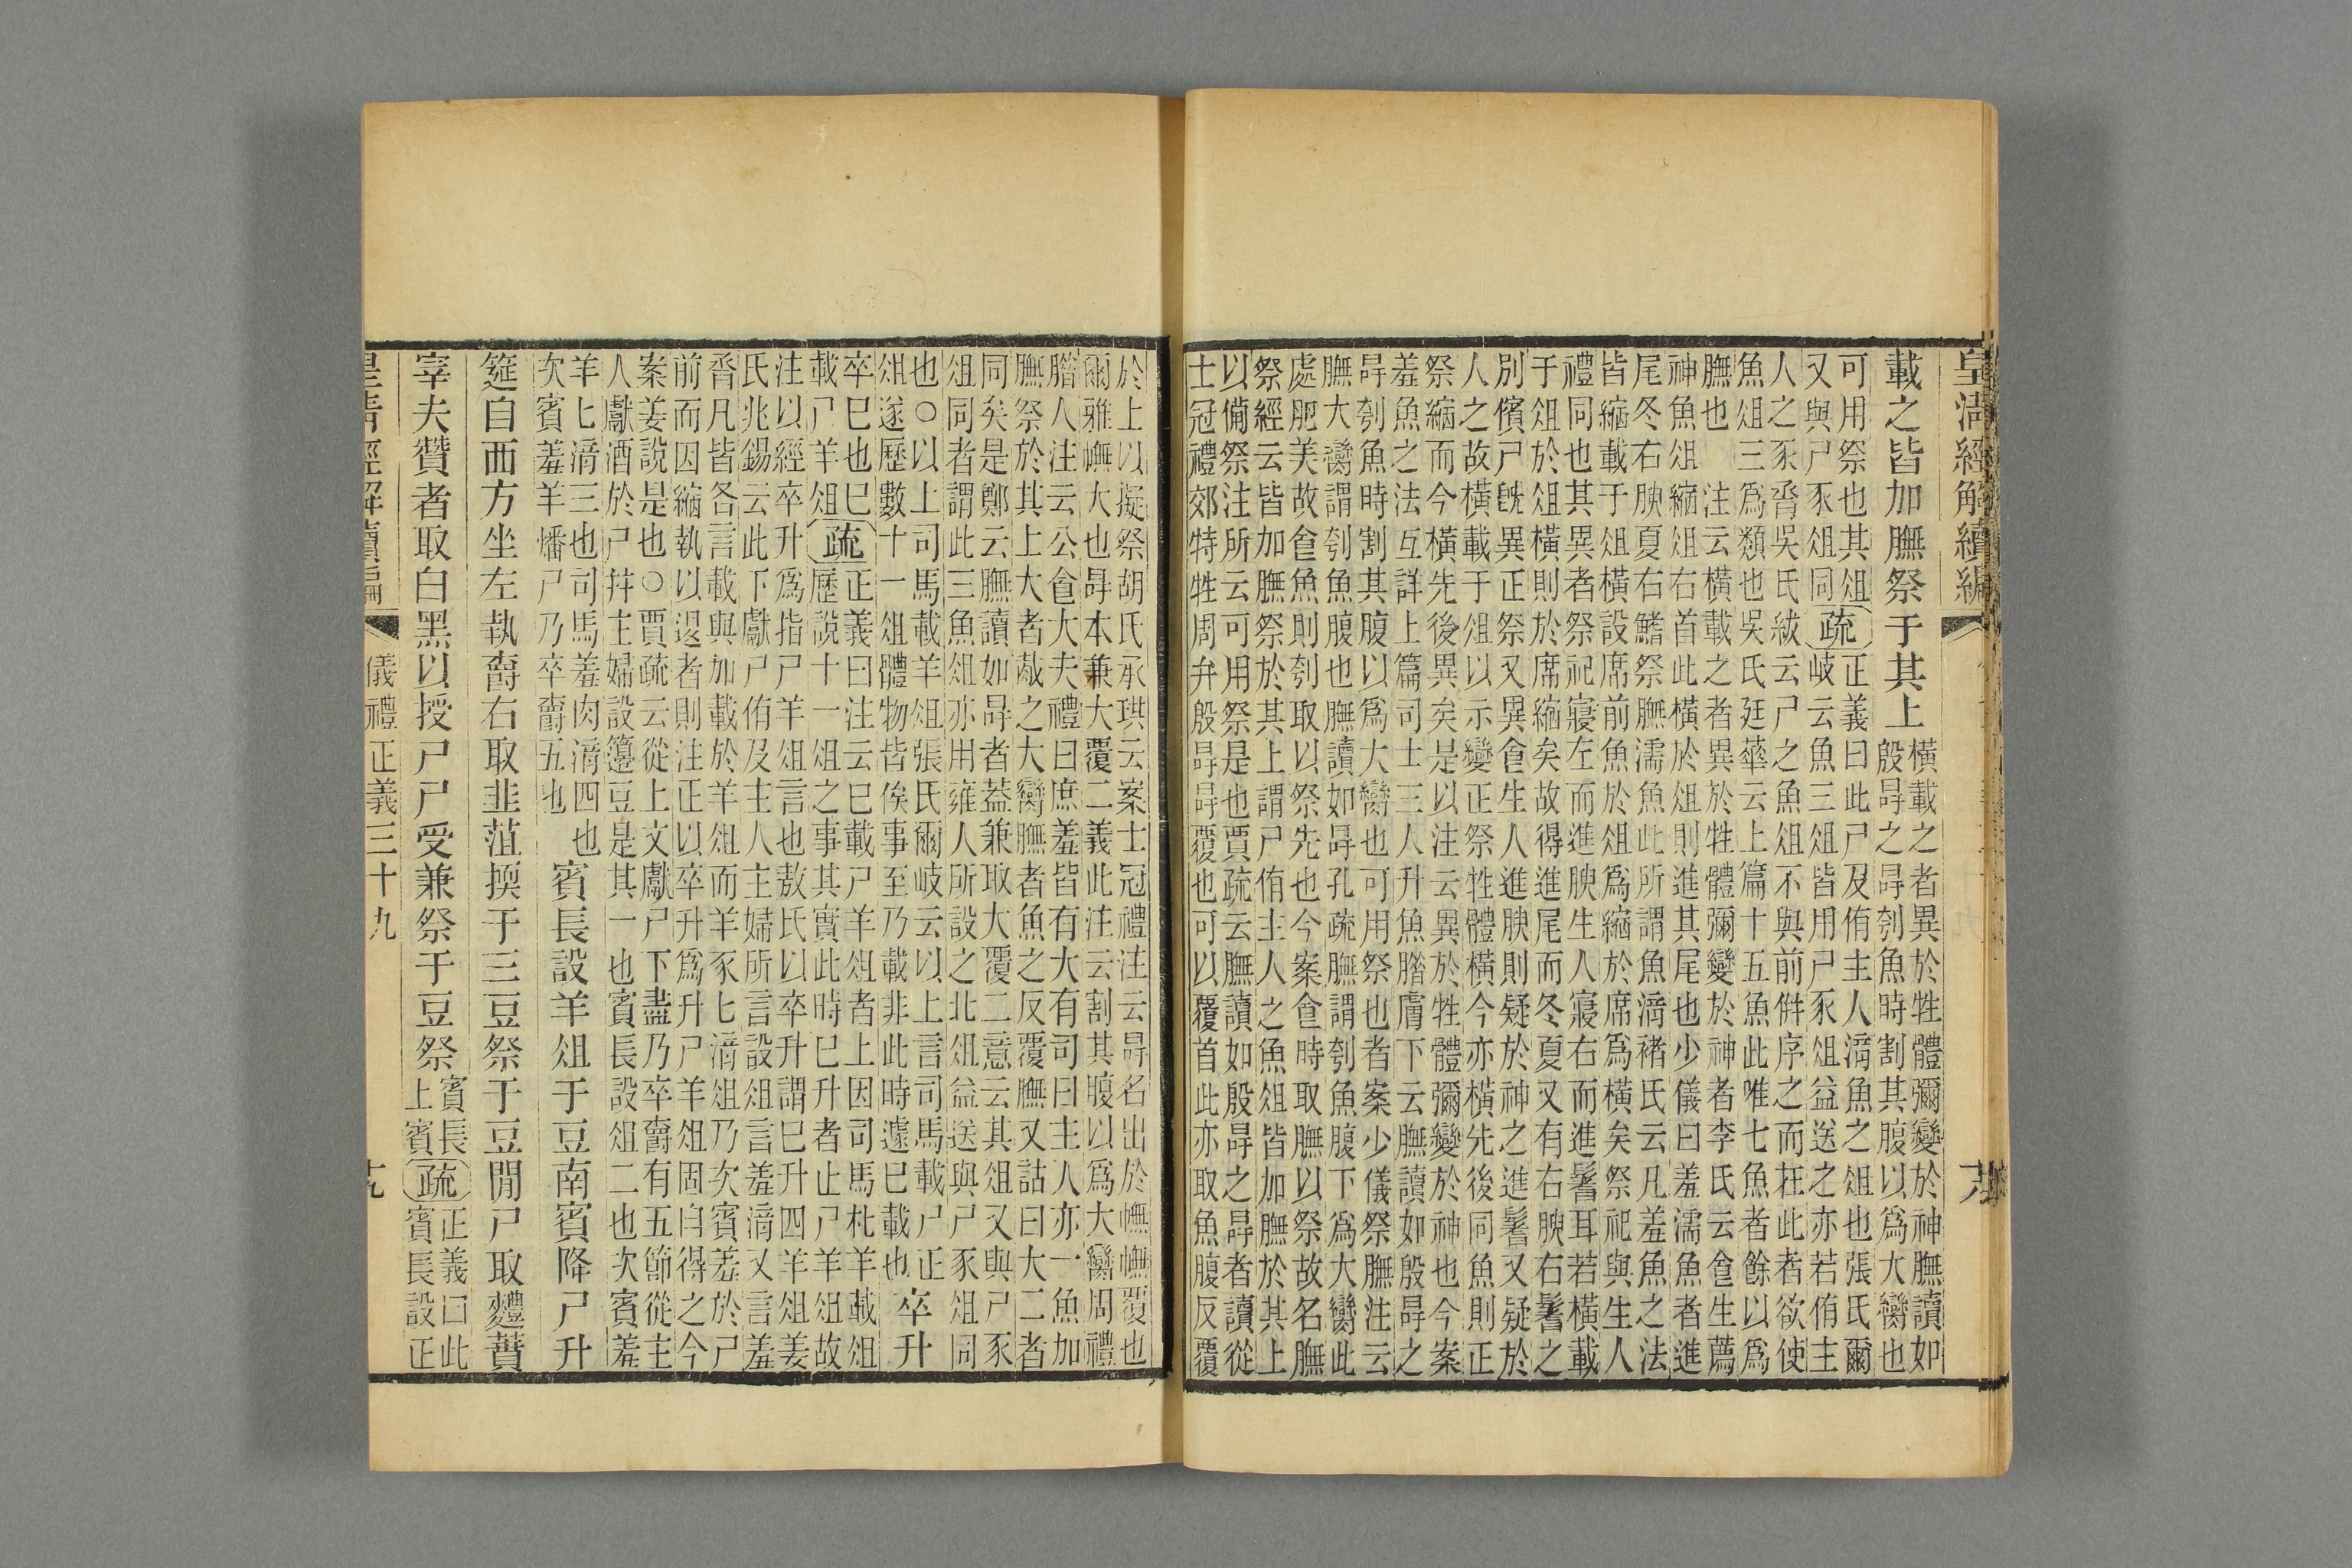 皇清經解續編
載之皆加膴祭于其上
橫載之者異於牲體彌變於神膴讀如
殷冔之冔刳魚時割其腹以爲大臠也
可用祭也其俎
又與尸豕俎同
疏
正義曰此尸及侑主人湆魚之俎也張氏爾
岐云魚三俎皆用尸豕俎益送之亦若侑主
人之豕脀吳氏紱云尸之魚俎不與前倂序之而在此者欲使
魚俎三爲類也吳氏廷華云上篇十五魚此唯七魚者餘以爲
膴也 注云橫載之者異於牲體彌變於神者李氏云食生薦
神魚俎縮俎右首此橫於俎則進其尾也少儀曰羞濡魚者進
尾冬右腴夏右鰭祭膴濡魚此所謂魚湆褚氏云凡羞魚之法
皆縮載于俎橫設席前魚於俎爲縮於席爲橫矣祭祀與生人
禮同也其異者祭祀寢左而進腴生人寢右而進鬐耳若橫載
于俎於俎橫則於席縮矣故得進尾而冬夏又有右腴右鬐之
別儐尸旣異正祭又異食生人進腴則疑於神之進鬐又疑於
人之故橫載于俎以示變正祭牲體橫今亦橫先後同魚則正
祭縮而今橫先後異矣是以注云異於牲體彌變於神也今案
羞魚之法互詳上篇司士三人升魚腊膚下云膴讀如殷冔之
冔刳魚時割其腹以爲大臠也可用祭也者案少儀祭膴注云
膴大臠謂刳魚腹也膴讀如冔孔疏膴謂刳魚腹下爲大臠此
處肥美故食魚則刳取以祭先也今案食時取膴以祭故名膴
祭經云皆加膴祭於其上謂尸侑主人之魚俎皆加膴於其上
以備祭注所云可用祭是也賈疏云膴讀如殷冔之冔者讀從
士冠禮郊特牲周弁殷冔冔覆也可以覆首此亦取魚腹反覆
於上以擬祭胡氏承珙云案士冠禮注云冔名出於幠幠覆也
爾雅幠大也冔本兼大覆二義此注云割其腹以爲大臠周禮
腊人注云公食大夫禮曰庶羞皆有大有司曰主人亦一魚加
膴祭於其上大者胾之大臠膴者魚之反覆膴又詁曰大二者
同矣是鄭云膴讀如冔者葢兼取大覆二意云其俎又與尸豕
俎同者謂此三魚俎亦用雍人所設之北俎益送與尸豕俎同
也○以上司馬載羊俎張氏爾岐云以上言司馬載尸正
俎遂歷數十一俎體物皆俟事至乃載非此時遽巳載也
卒升
卒巳也巳
載尸羊俎
疏
正義曰注云巳載尸羊俎者上因司馬朼羊載俎
歷說十一俎之事其實此時巳升者止尸羊俎故
注以經卒升爲指尸羊俎言也敖氏以卒升謂巳升四羊俎姜
氏兆錫云此下獻尸侑及主人主婦所言設俎言羞湆又言羞
脀凡皆各言載與加載於羊俎而羊豕匕湆俎乃次賓羞於尸
前而因縮執以退者則注正以卒升爲升尸羊俎固自得之今
案姜說是也○賈疏云從上文獻尸下盡乃卒爵有五節從主
人獻酒於尸幷主婦設籩豆是其一也賓長設俎二也次賓羞
羊匕湆三也司馬羞肉湆四也
次賓羞羊燔尸乃卒爵五也
賓長設羊俎于豆南賓降尸升
筵自西方坐左執爵右取韭菹擩于三豆祭于豆閒尸取麷蕡
宰夫贊者取白黑以授尸尸受兼祭于豆祭
賓長
上賓
疏
正義曰此
賓長設正
皇清經解續編
儀禮正義三十九
十九